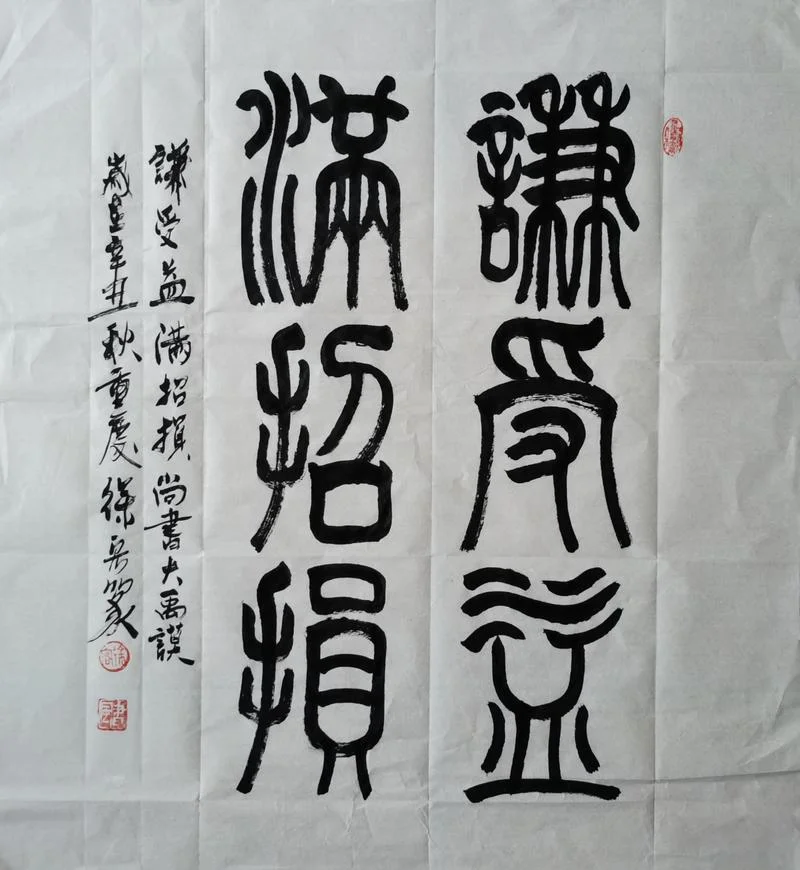 謙受益
滿招損
謙受益满招損尚書大禹謨
歲在辛丑秋重慶徐岳篆